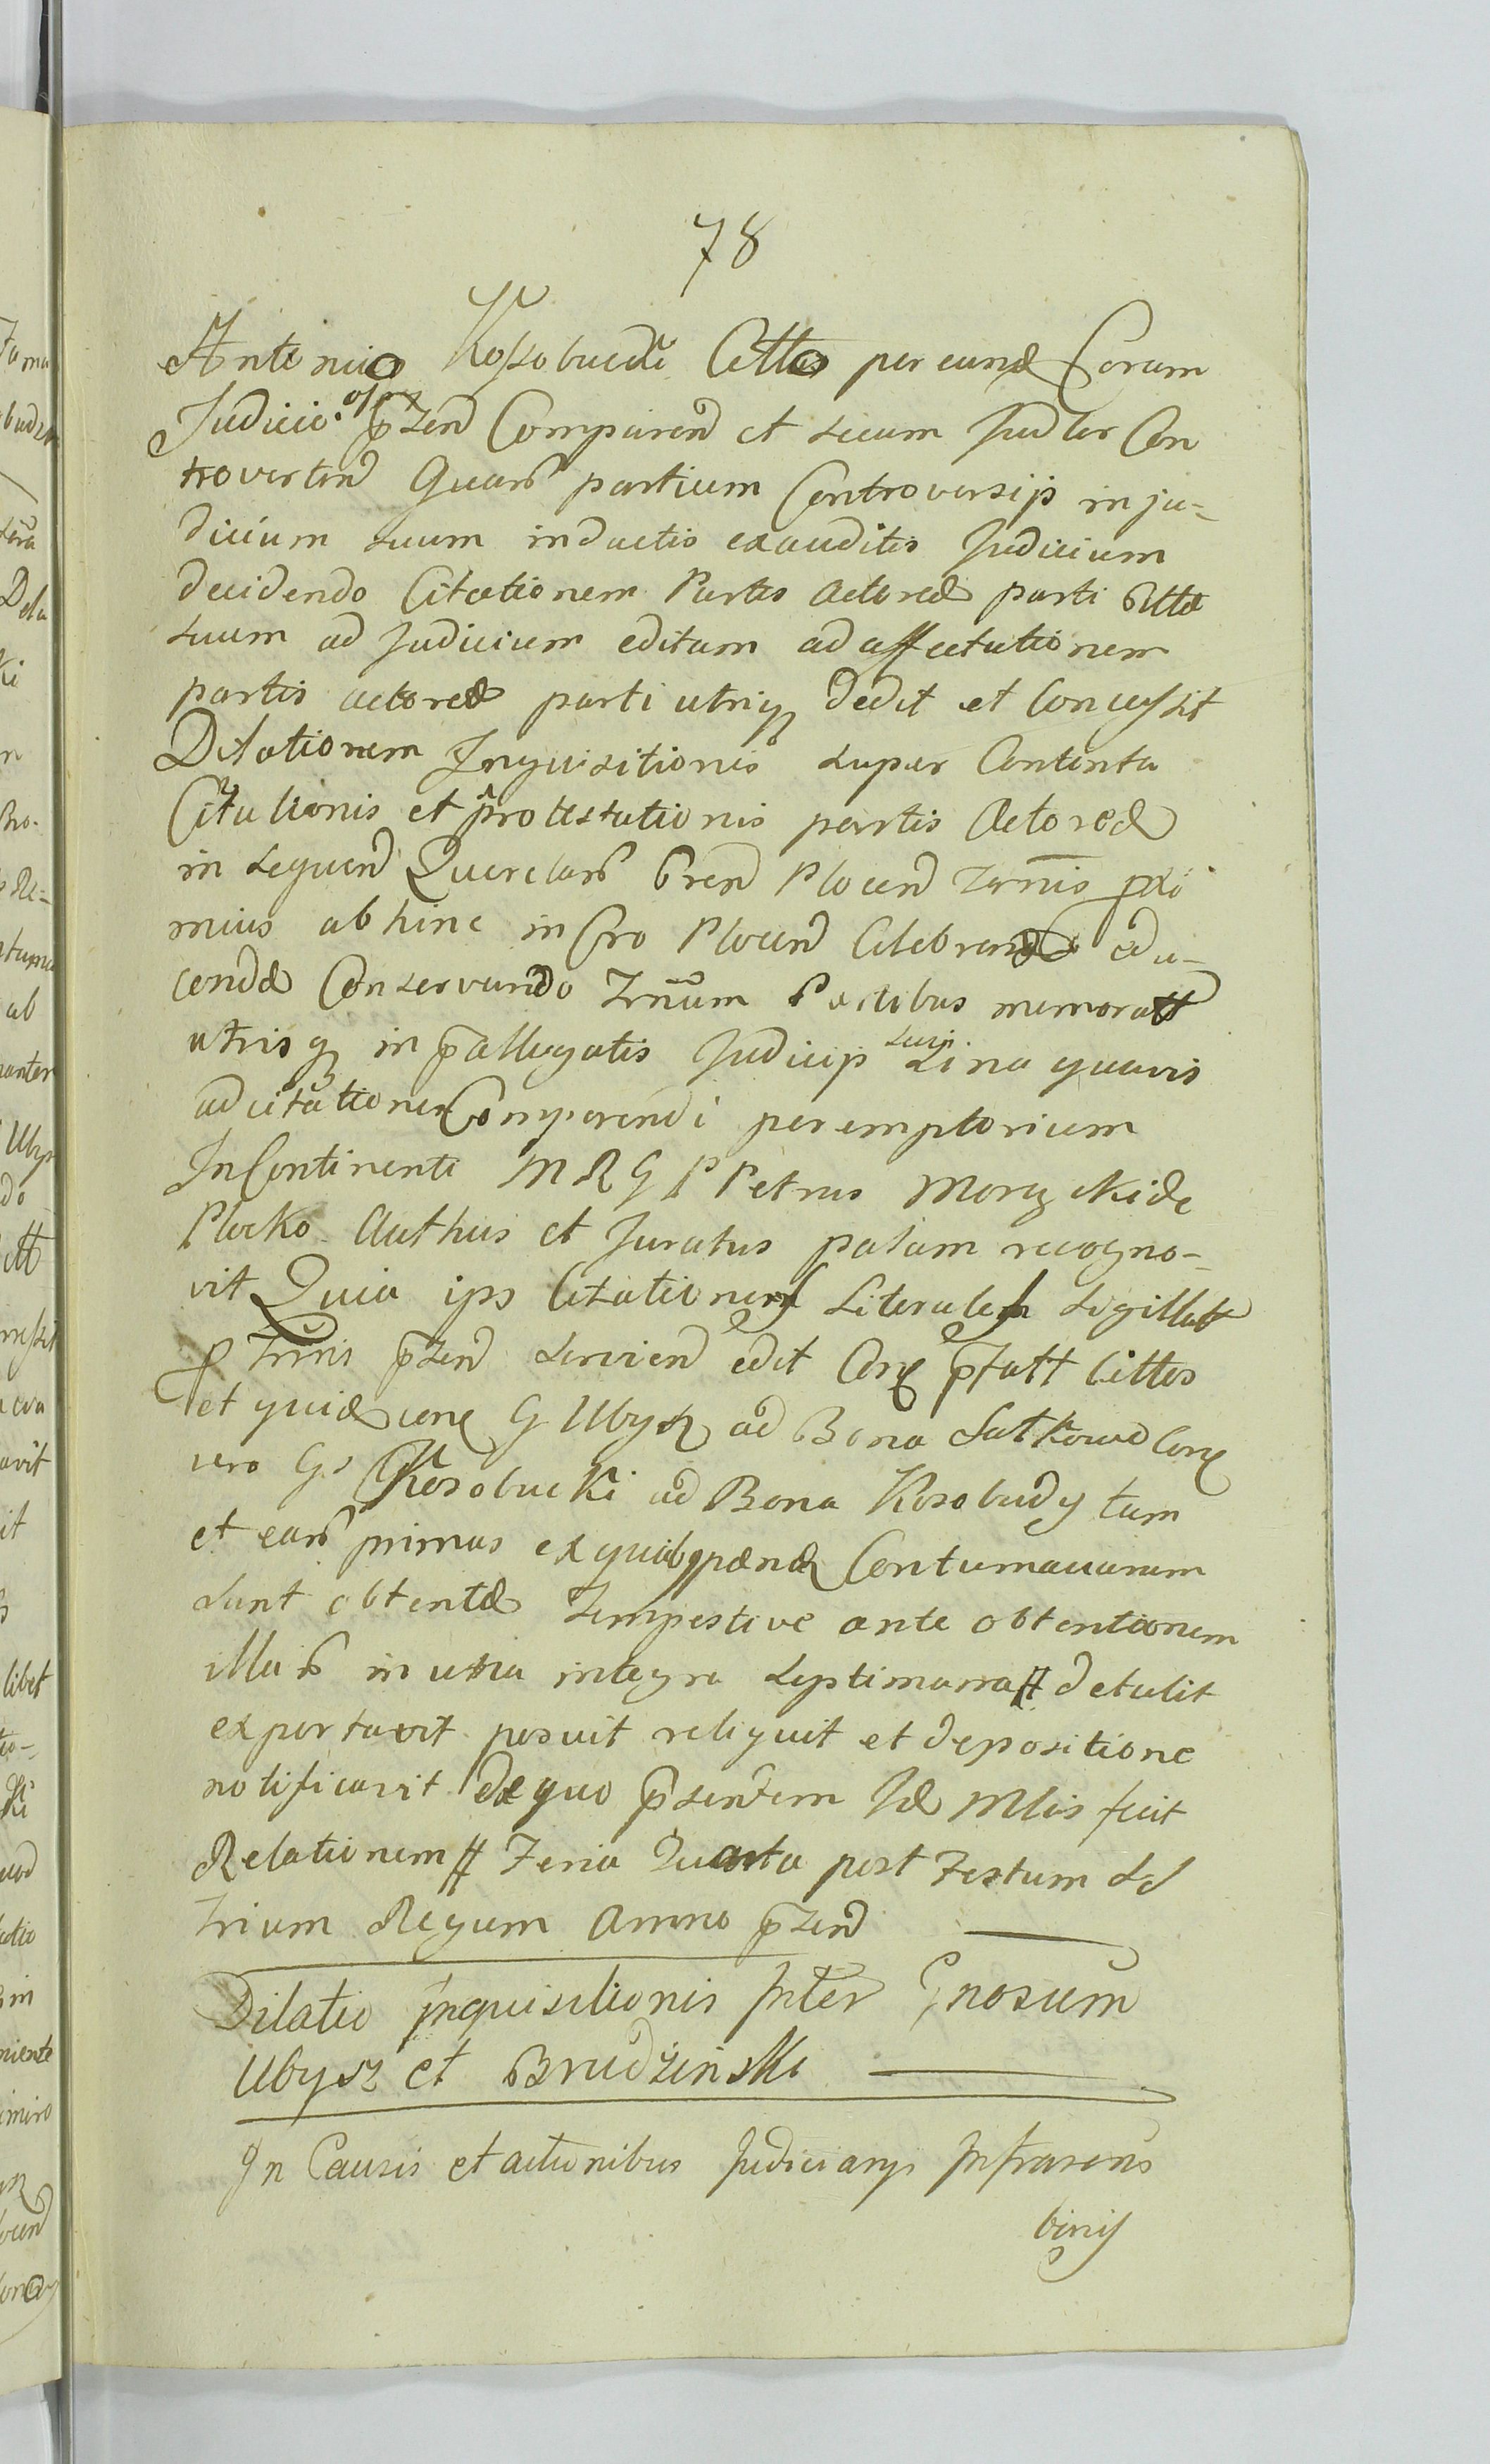 78
Antonio Kossobucki Cittos per eund Coram
Judicio pzend Comparend et secum Judter Con
trovertend Quarb partium Controversijs in ju-
dicium suum inductis exauditis Judicium
decidendo Citationem Partis Actoreæ parti Cittæ
suum ad Judicium editam ad affectationem
partis actoreæ parti utriq dedit et Concessit
Dilationem Inquisitionis super Contenta
Citationis et protestationis partis Actoreæ
in sequend Querelarb Gren Plocen Zrnis pxi
mius abhinc in Cro Plocen Celebrand edu-
cendæ Conservando Zrnum Partibus memoratt
utrisq in pallegatis Judicijs suis Sina quavis
adcitatione Comparendi peremptorium
In Continenti M R G P Petrus Morzycki de
Plocko Authus et Juratus palam recogno-
vit Quia ips Citationes Literales Sigillatt
P Trnis pzend servien edit Corq pfatt Cittos
et quid unq G Ubysz ad Bona Sutkowo Corq
vero Gs Kosobucki ad Bona Kosobudy tum
et earb primas ex quibq pænæ Contumaciarum
sunt obtentæ tempestive ante obtentionem
illarb in una integra septimana detulit
exportavit posuit reliquit et depositione
notificavit de quo pzentem Id Mlis fecit
Relationem Feria Quarta post Festum SS
trium Regum Anno pzend
Dilatio inquisitionis Inter Gnosum
Ubysz et Brudzinski
In Causis et actionibus Judiciarys Infrascris
binis